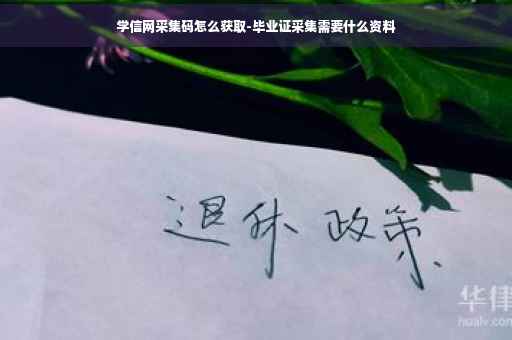 学信网采集码怎么获取-毕业证采集需要什么资料
退休 政策
华律
hualv.com